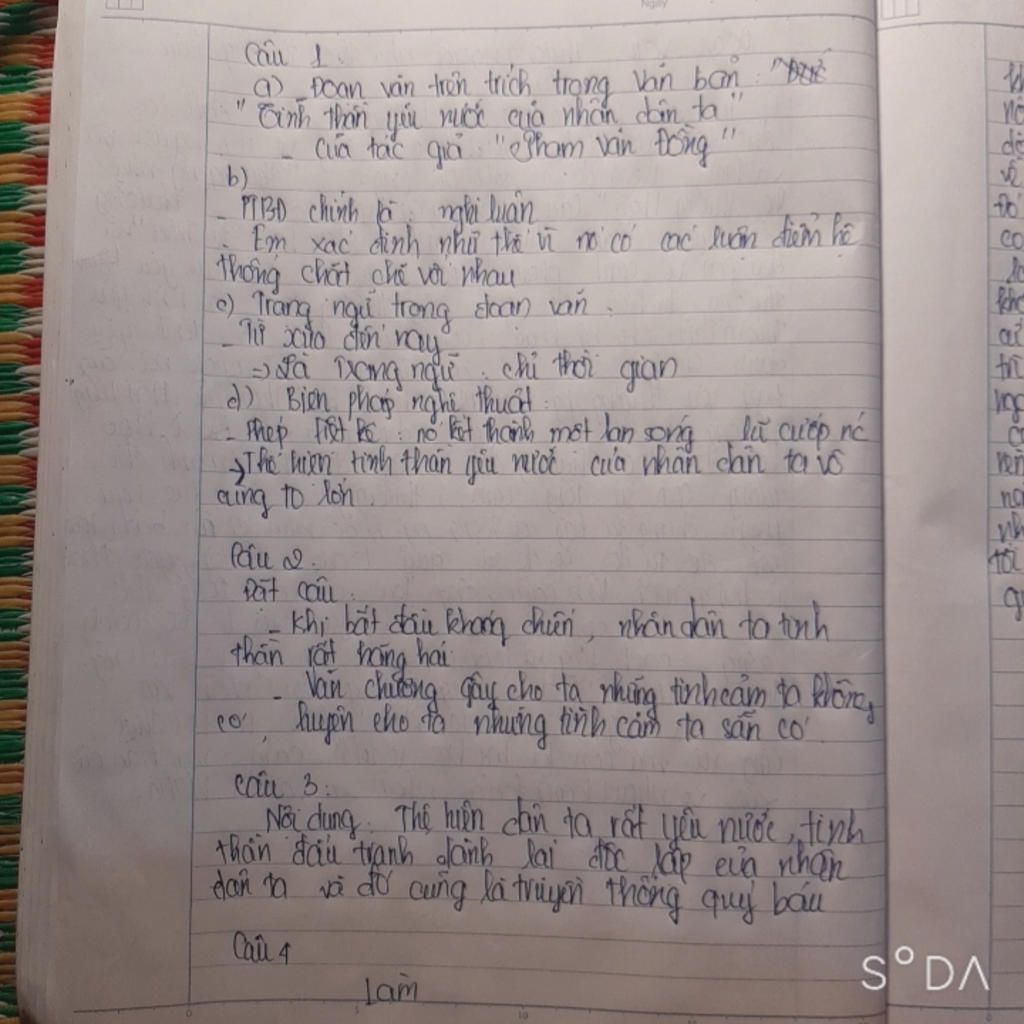 Câu 1.
a) Đoạn văn trên trích trong văn bản
"Tinh thần yêu nước của nhân dân ta"
- Của tác giả "Phạm Văn Đồng"
b)
- PTBĐ chính là: nghị luận
- Em xác định như thế vì nó có các luận điểm hệ
thống chặt chẽ với nhau
c) Trạng ngữ trong đoạn văn.
- Từ xưa đến nay
=> Là trạng ngữ chỉ thời gian
d) Biện pháp nghệ thuật:
- Phép liệt kê: nó kết thành một làn sóng lũ cướp nc
→ Thể hiện tinh thần yêu nước của nhân dân ta vô
cùng to lớn.
Câu 2.
Đặt câu:
- Khi bắt đầu kháng chiến, nhân dân ta tinh
thần rất hăng hái
- Văn chương gây cho ta những tình cảm ta không
có, luyện cho ta những tình cảm ta sẵn có
Câu 3.
Nội dung. Thể hiện dân ta rất yêu nước, tinh
thần đấu tranh dành lại độc lập của nhân
dân ta và đó cũng là truyền thống quý báu
Câu 4
Làm
S°DA